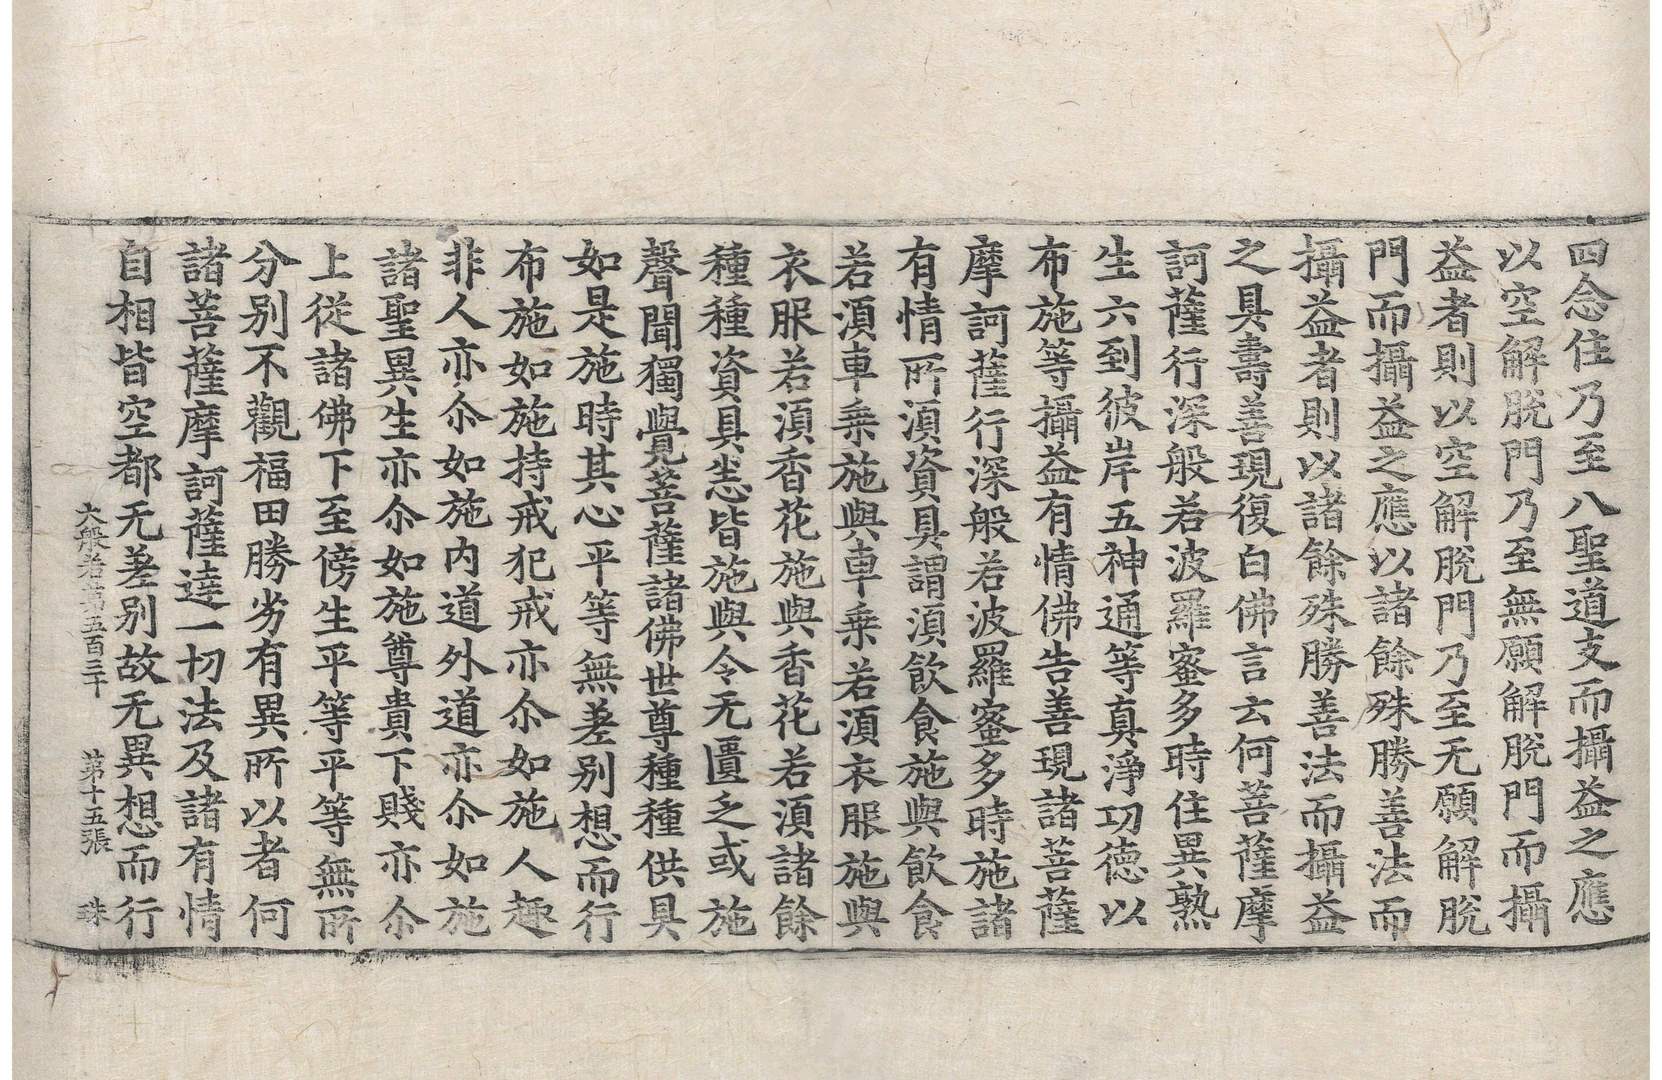 四念住乃至八聖道支而攝益之應
以空解脫門乃至無願解脫門而攝
益者則以空解脫門乃至无願解脫
門而攝益之應以諸餘殊勝善法而
攝益者則以諸餘殊勝善法而攝益
之具壽善現復白佛言云何菩薩摩
訶薩行深般若波羅蜜多時住異熟
生六到彼岸五神通等真淨功德以
布施等攝益有情佛告善現諸菩薩
摩訶薩行深般若波羅蜜多時施諸
有情所湏資具謂湏飲食施與飲食
若湏車乗施與車乗若湏衣服施與
衣服若湏香花施與香花若湏諸餘
種種資具悉皆施與令无匱乏或施
聲聞獨覺菩薩諸佛世尊種種供具
如是施時其心平等無差别想而行
布施如施持戒犯戒亦尒如施人趣
非人亦尒如施内道外道亦尒如施
諸聖異生亦尒如施尊貴下賤亦尒
上從諸佛下至傍生平等平等無所
分别不觀福田勝劣有異所以者何
諸菩薩摩訶薩達一切法及諸有情
自相皆空都无差别故无異想而行
大般若第五百三十 第十五張 珠